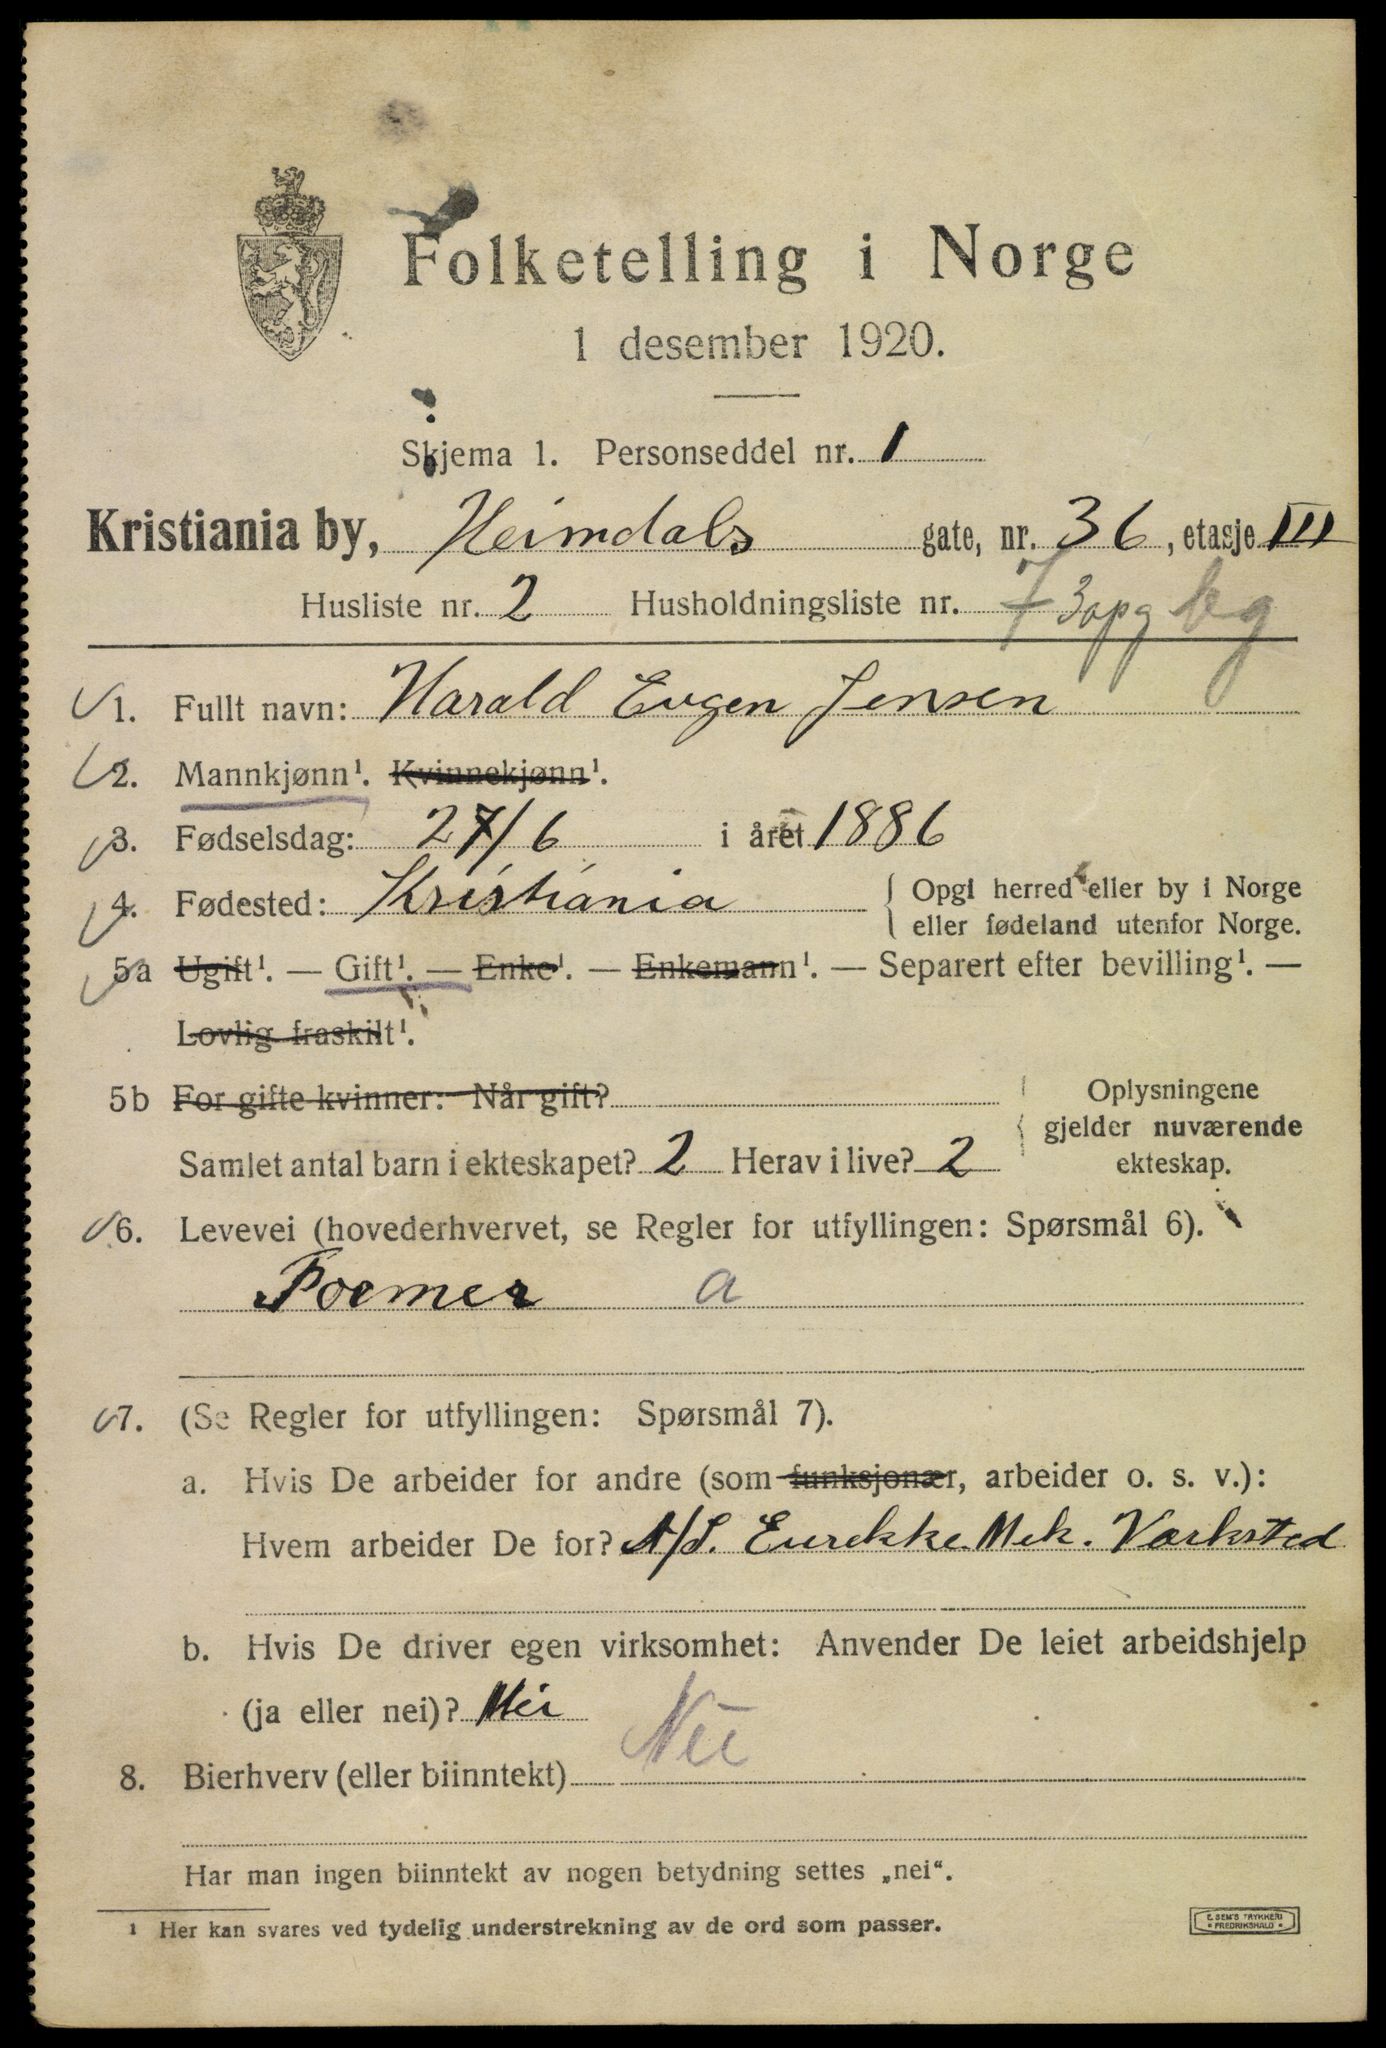 Folketelling i Norge
1 desember 1920.
Skjema 1. Personseddel nr. 1
Kristiania by, Heimdals gate, nr. 36, etasje III
Husliste nr. 2 Husholdningsliste nr. 7 3opg bg
1. Fullt navn: Harald Eugen Jensen
2. Mannkjønn¹. Kvinnekjønn¹.
3. Fødselsdag: 27/6 i året 1886
4. Fødested: Kristiania { Opgi herred eller by i Norge
eller fødeland utenfor Norge.
5a Ugift¹. — Gift¹. — Enke¹. — Enkemann¹. — Separert efter bevilling¹. —
Lovlig fraskilt¹.
5b For gifte kvinner: Når gift? { Oplysningene
gjelder nuværende
Samlet antal barn i ekteskapet? 2 Herav i live? 2 ekteskap.
6. Levevei (hovederhvervet, se Regler for utfyllingen: Spørsmål 6).
Former a
7. (Se Regler for utfyllingen: Spørsmål 7).
a. Hvis De arbeider for andre (som funksjonær, arbeider o. s. v.):
Hvem arbeider De for? A/S. Eurekke Mek. Værksted
b. Hvis De driver egen virksomhet: Anvender De leiet arbeidshjelp
(ja eller nei)? Nei
8. Bierhverv (eller biinntekt) Nei
Har man ingen biinntekt av nogen betydning settes „nei“.
¹ Her kan svares ved tydelig understrekning av de ord som passer.
E. SEM'S TRYKKERI
* FREDRIKSHALD *